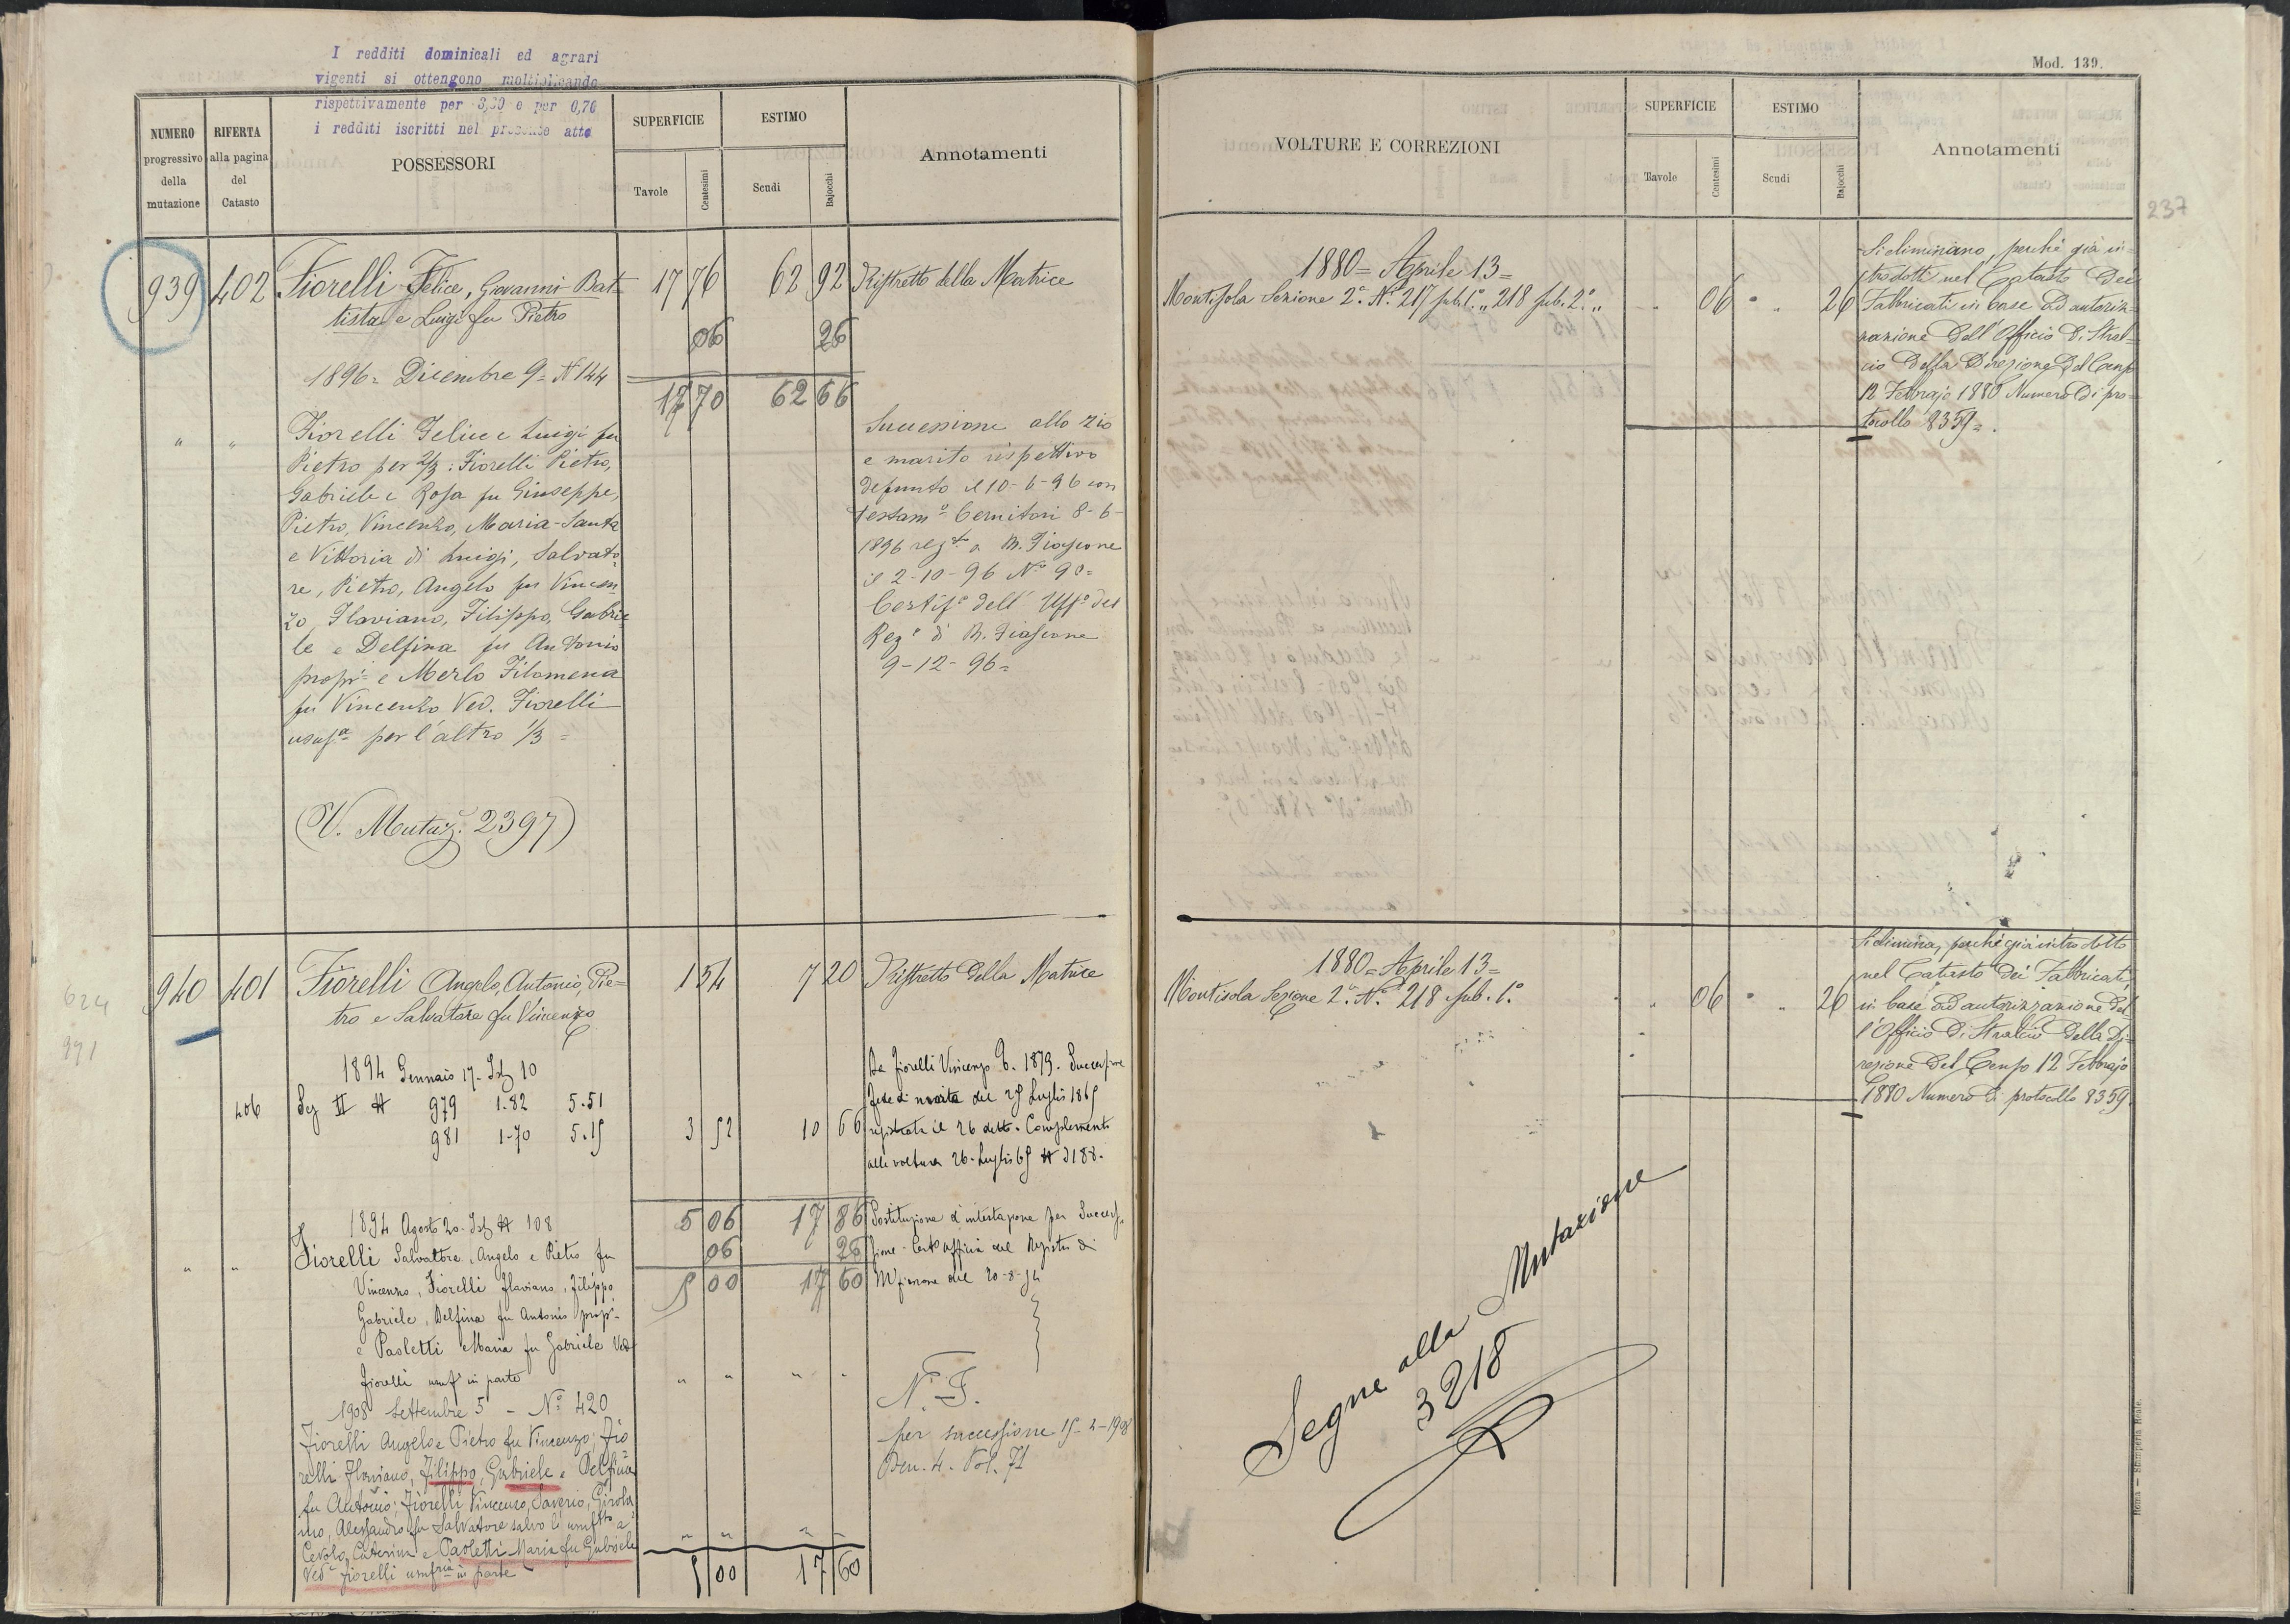 I redditi dominicali ed agrari
vigenti si ottengono moltiplicando
rispettivamente per 3,30 e per 0,70
i redditi iscritti nel presente atto
NUMERO progressivo della mutazione
RIFERTA alla pagina del Catasto
POSSESSORI
SUPERFICIE
Tavole Centesimi
ESTIMO
Scudi Bajocchi
Annotamenti
939 402 Fiorelli Felice, Giovanni Bat-
tista e Luigi fu Pietro
17 76 62 92 Ristretto della Matrice
06 26
1896 = Dicembre 9 = N 144
17 70 62 66
" " Fiorelli Felice e Luigi fu
Pietro per 2/3: Fiorelli Pietro,
Gabriele e Rosa fu Giuseppe,
Pietro, Vincenzo, Maria-Santa
e Vittoria di Luigi, Salvato-
re, Pietro, Angelo fu Vincen-
zo, Flaviano, Filippo, Gabrie-
le e Delfina fu Antonio
propri e Merlo Filomena
fu Vincenzo Ved. Fiorelli
usufa per l'altro 1/3 =
(V. Mutaz. 2397)
Successione allo zio
e marito rispettivo
defunto il 10-6-96 con
testamo Cernitori 8-6-
1896 regto a M. Fiascone
il 2-10-96 No 90 =
Certifo dell' Uffo del
Rego di M. Fiascone
9-12-96 =
624
991
940 401 Fiorelli Angelo, Antonio, Pie-
tro e Salvatore fu Vincenzo
1 54 7 20 Ristretto della Matrice
1894 Gennaio 17 - 10
406 Sez II N 979 1.82 5.51
981 1-70 5.15
3 52 10 66
Da Fiorelli Vincenzo 1879. Successione
fede di morte del 25 Luglio 1865
registrata il 26 detto. Complemento
alla voltura 26 Luglio 65 N 3188.
5 06 17 86
06 26
5 00 17 60
1894 Agosto 20 - N 108
" " Fiorelli Salvatore, Angelo e Pietro fu
Vincenzo, Fiorelli Flaviano, Filippo
Gabriele, Delfina fu Antonio propi
e Paoletti Maria fu Gabriele Ved
Fiorelli usufa in parte
Sostituzione d'intestazione per Succes-
sione - Certo officio del Registro di
Mfiascone del 20-8-94
1908 Settembre 5 - No 420
Fiorelli Angelo e Pietro fu Vincenzo; Fio
relli Flaviano, Filippo, Gabriele e Delfina
fu Antonio; Fiorelli Vincenzo, Saverio, Girola
mo, Alessandro fu Salvatore salvo li usuftto a
Cevolo Caterina e Paoletti Maria fu Gabriele
Veda Fiorelli usufria in parte
N. I.
per successione 15-2-1908
Den. 4. Vol. 71
5 00 17 60
Mod. 139.
237
VOLTURE E CORREZIONI
SUPERFICIE
Tavole Centesimi
ESTIMO
Scudi Bajocchi
Annotamenti
1880 = Aprile 13 =
Montisola Sezione 2a No 217 sub. 1o " 218 sub. 2o "
06 " " 26
Si eliminano, perchè già in-
trodotti nel Catasto dei
Fabbricati in base ad autoriz-
zazione dell'Officio di Stral-
cio della Direzione del Censo
12 Febbrajo 1880 Numero di pro-
tocollo 8359 =.
1880 = Aprile 13 =
Montisola Sezione 2a No 218 sub. 1o
06 " " 26
Si elimina, perchè già introdotto
nel Catasto dei Fabbricati,
in base ad autorizzazione del-
l'Officio di Stralcio della Di-
rezione del Censo 12 Febbrajo
1880 Numero di protocollo 8359.
Segue alla Mutazione
3218
Roma — Stamperia Reale.